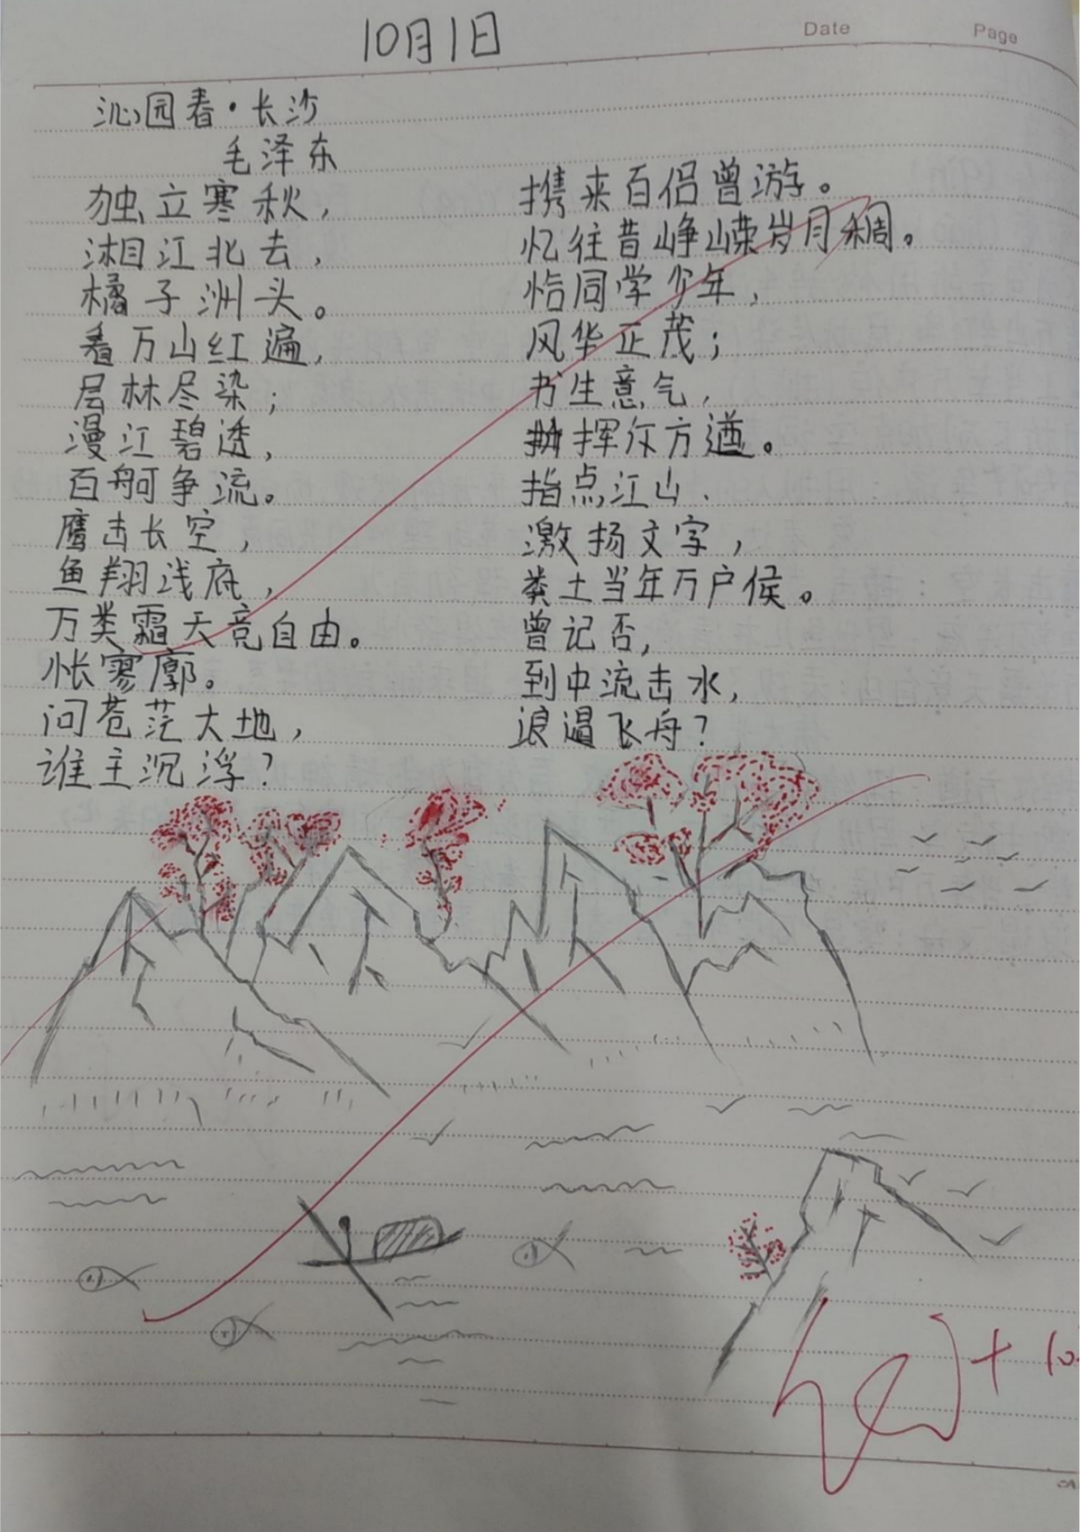 10月1日
Date
Page
沁园春·长沙
毛泽东
独立寒秋，
湘江北去，
橘子洲头。
看万山红遍，
层林尽染；
漫江碧透，
百舸争流。
鹰击长空，
鱼翔浅底，
万类霜天竞自由。
怅寥廓。
问苍茫大地，
谁主沉浮？
携来百侣曾游。
忆往昔峥嵘岁月稠。
恰同学少年，
风华正茂；
书生意气，
挥斥方遒。
指点江山．
激扬文字，
粪土当年万户候。
曾记否，
到中流击水，
浪遏飞舟？
+10